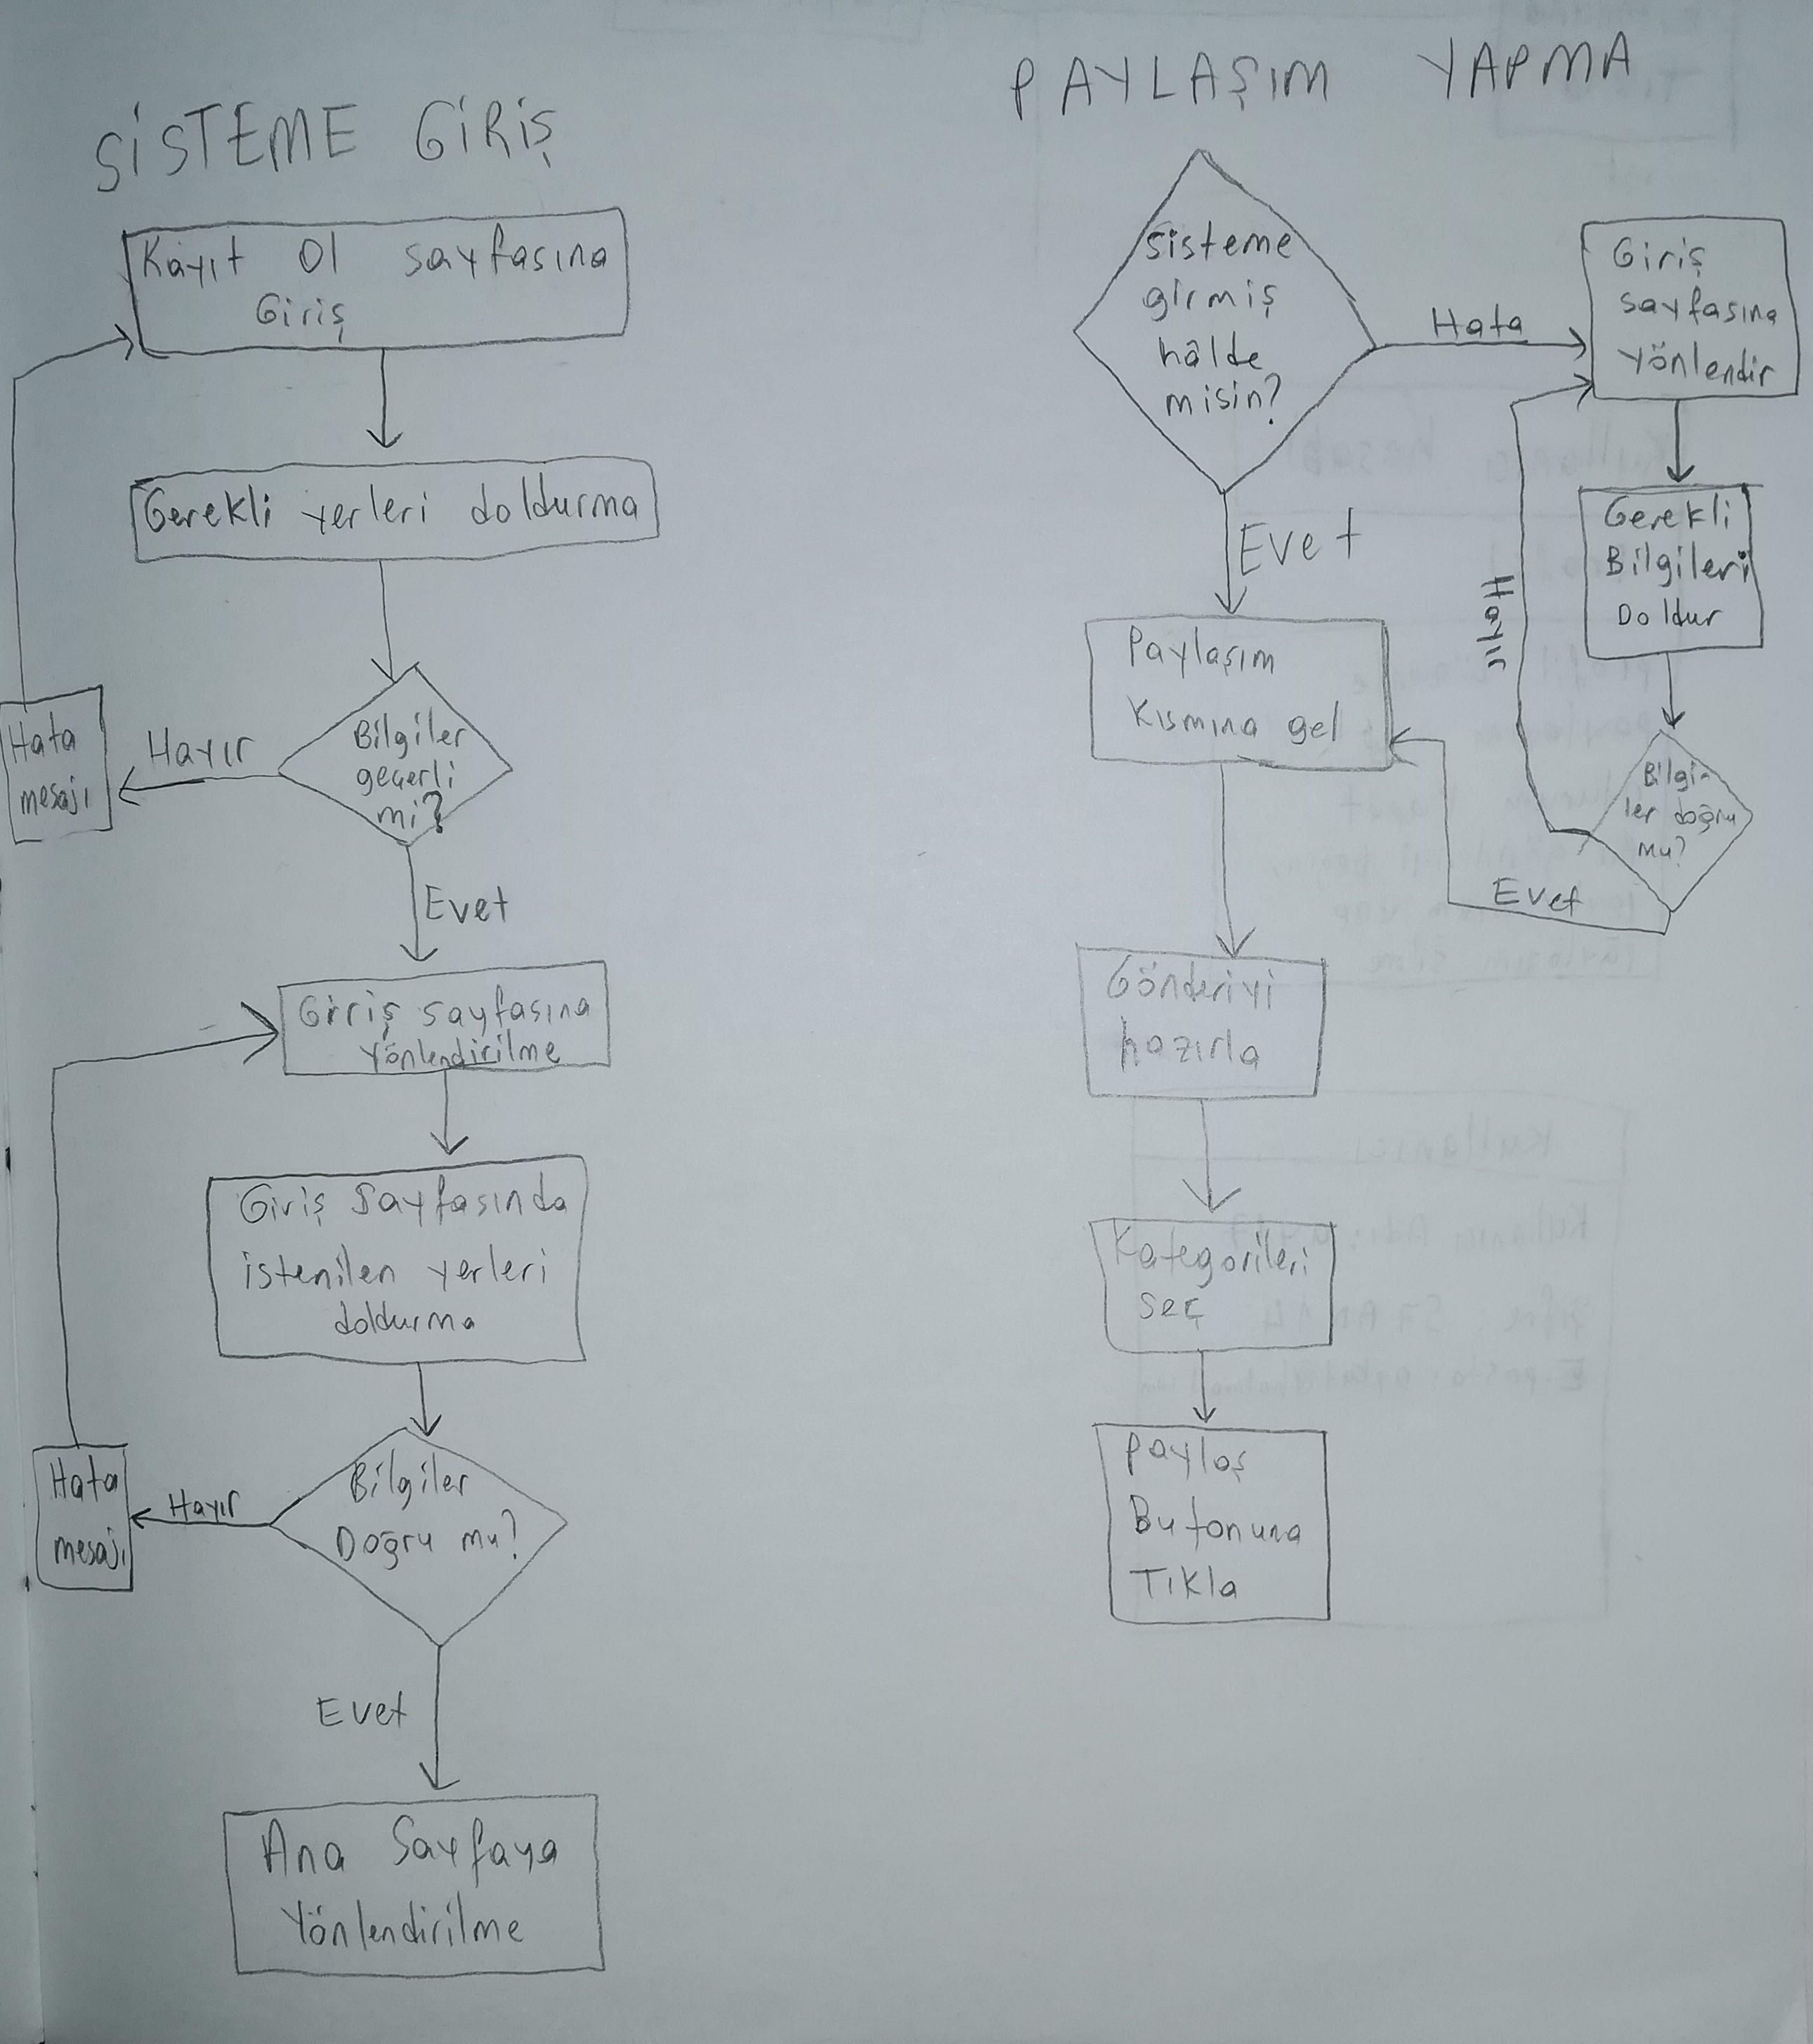 SİSTEME GİRİŞ
Kayıt Ol sayfasına
Giriş
Gerekli yerleri doldurma
Bilgiler
geçerli
mi?
Hayır
Hata
mesajı
Evet
Giriş sayfasına
yönlendirilme
Giriş Sayfasında
istenilen yerleri
doldurma
Bilgiler
Doğru mu?
Hayır
Hata
mesajı
Evet
Ana Sayfaya
Yönlendirilme
PAYLAŞIM YAPMA
Sisteme
girmiş
hâlde
misin?
Hata
Giriş
sayfasına
yönlendir
Gerekli
Bilgileri
Doldur
Bilgi-
ler doğru
mu?
Hayır
Evet
Evet
Paylaşım
Kısmına gel
Gönderiyi
hazırla
Kategorileri
seç
Paylaş
Butonuna
Tıkla